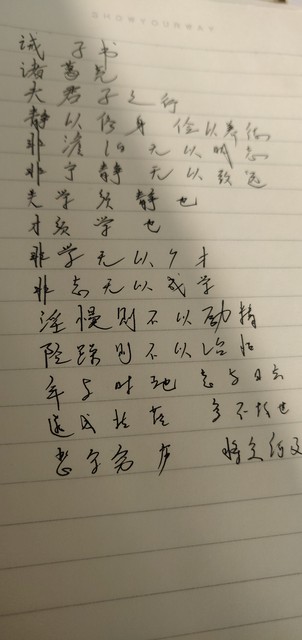 SHOWYOURWAY
诫子书
诸葛亮
夫君子之行
静以修身 俭以养德
非淡泊 无以明志
非宁静 无以致远
夫学须静也
才须学也
非学无以广才
非志无以成学
淫慢则不以励精
险躁则不以治性
年与时驰 意与日去
遂成枯落 多不接也
悲守穷庐 将复何及